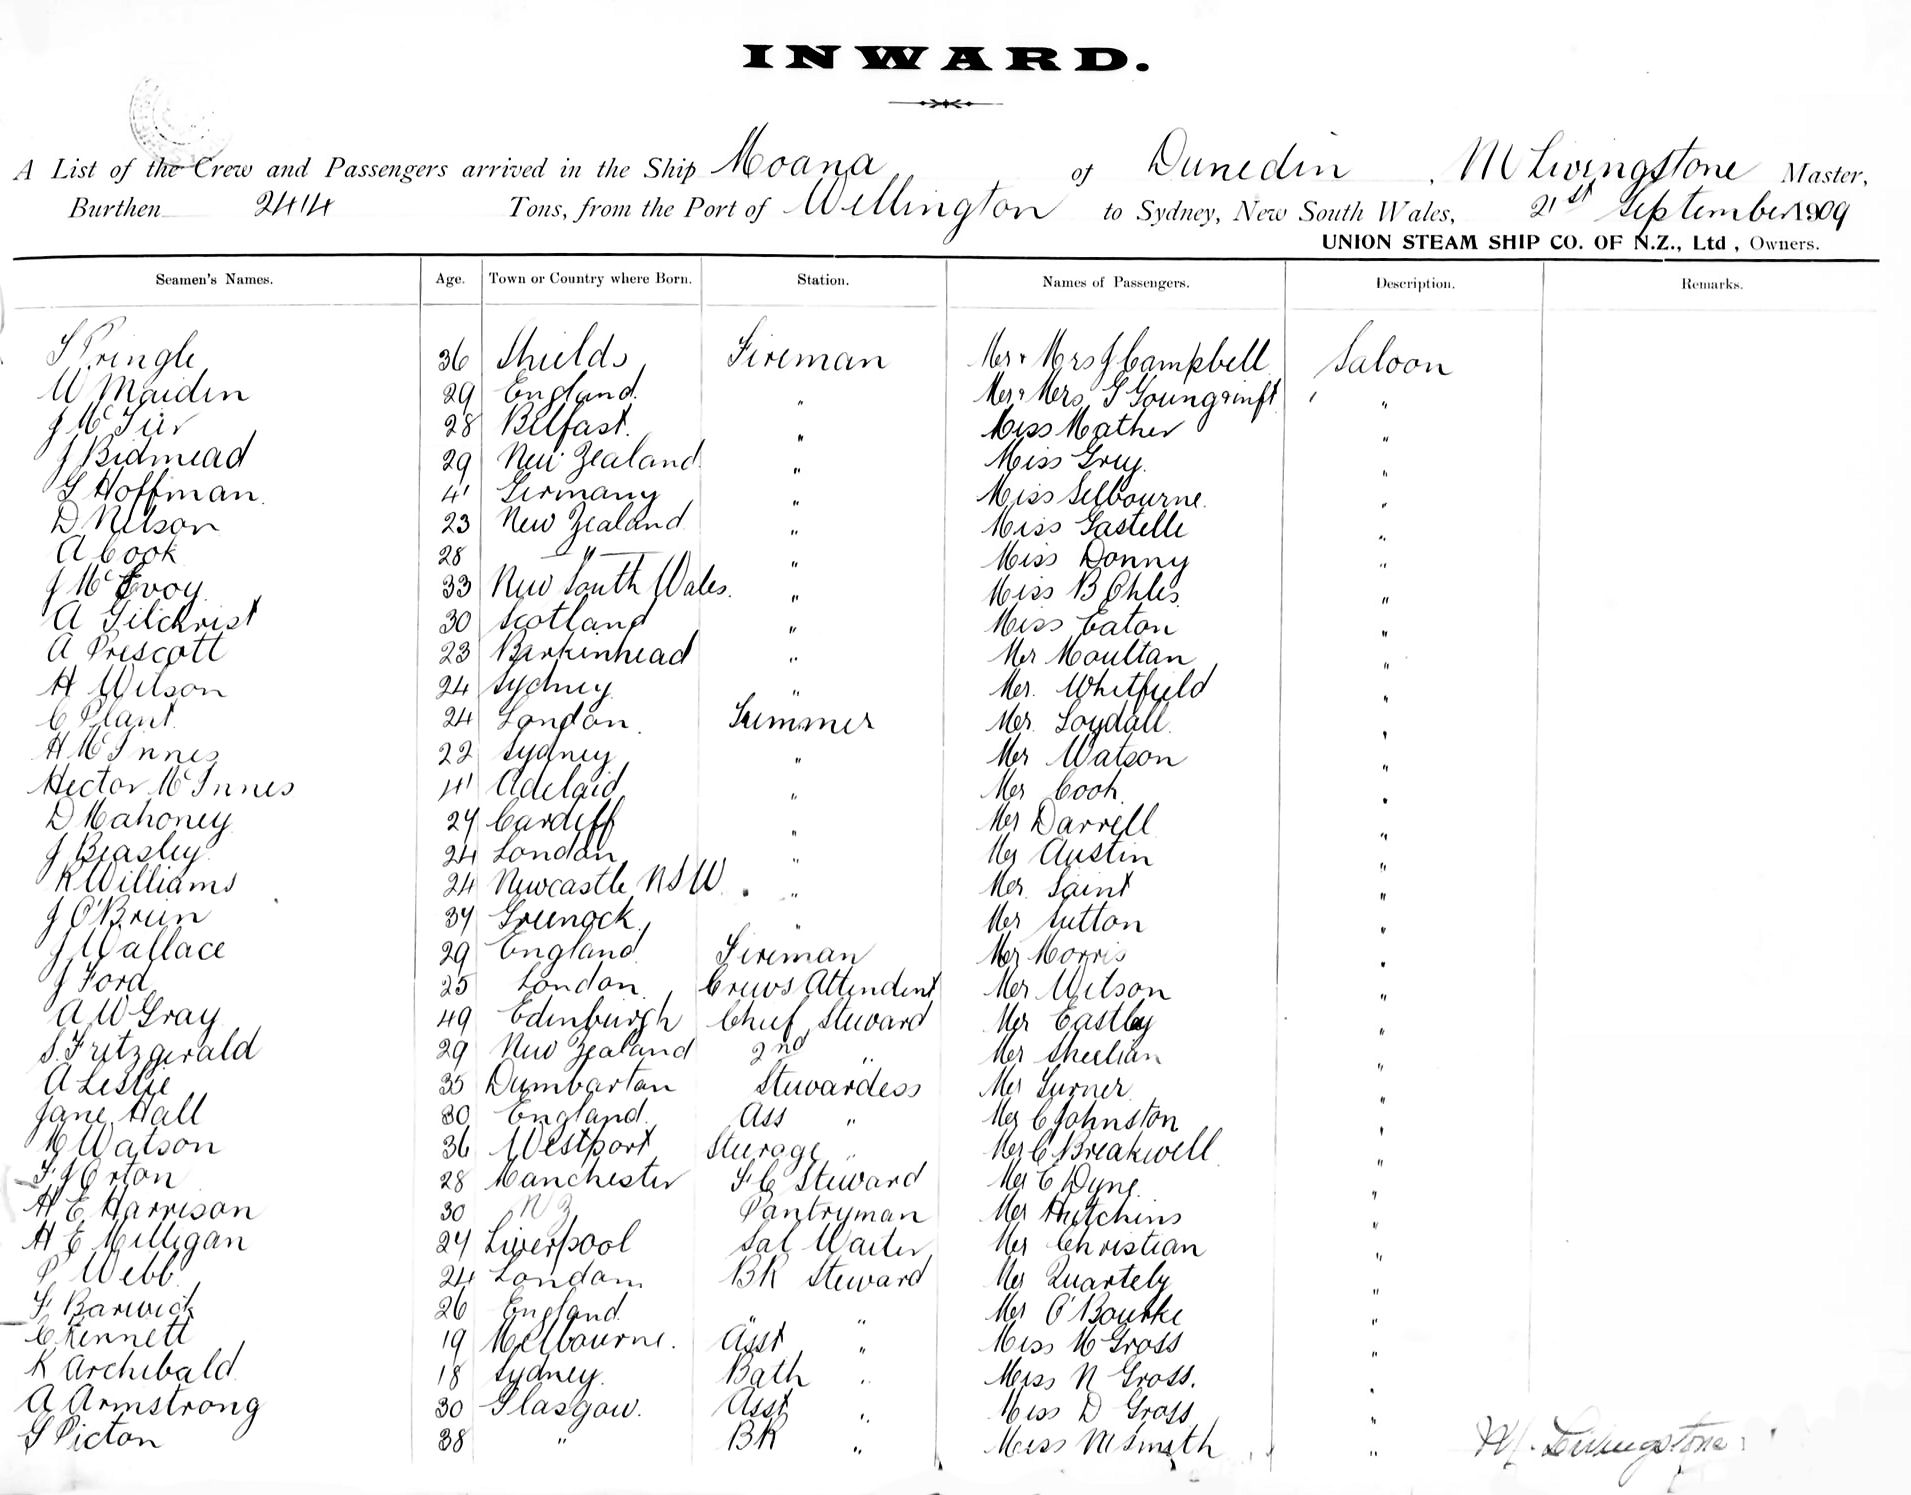 INWARD.
A List of the Crew and Passengers arrived in the Ship Moana of Dunedin, M Livingstone Master,
Burthen 2414 Tons, from the Port of Wellington to Sydney, New South Wales, 21st September 1909
UNION STEAM SHIP CO. OF N.Z., Ltd, Owners.
Seamen's Names. Age. Town or Country where Born. Station. Names of Passengers. Description. Remarks.
S Pringle 36 Shields Fireman Mr & Mrs J Campbell Saloon
W Maiden 29 England. " Mr & Mrs G Young & inft "
J McTier 28 Belfast. " Miss Mather "
J Bidmead 29 New Zealand. " Miss Grey. "
G Hoffman. 41 Germany " Miss Selbourne. "
D Nelson 23 New Zealand " Miss Gastelle "
A Cook 28 " " Miss Donny "
J McEvoy. 33 New South Wales. " Miss B "
A Gilchrist 30 Scotland " Miss Eaton "
A Prescott 23 Birkenhead " Mr Moultan "
H Wilson 24 Sydney. " Mr. Whitfield "
C Plant. 24 London. Trimmer Mr. Loydall. "
H McInnes 22 Sydney " Mr Watson "
Hector McInnes 41 Adelaid " Mr Cook. "
D Mahoney 27 Cardiff " Mr Darrell "
J Beasley. 24 London " Mr Austin "
R Williams 24 Newcastle NSW. " Mr. Saint "
J O'Brien 37 Greenock. " Mr Sutton "
J Wallace 29 England. Fireman Mr Morris "
J Ford 25 London. Crews Attendent Mr Wilson "
A W Gray 49 Edinburgh Chief Steward Mr Eastley "
S. Fritzgerald 29 New Zealand 2nd " Mr Sheehan "
A Leslie 35 Dumbarton Stewardess Mr Turner "
Jane Hall 30 England. Ass " Mr C Johnston "
M Watson 36 Westport Sturage " Mr C Breakwell "
F J Orton 28 Manchester F C Steward Mr C Dyne. "
H E Harrison 30 N Z Pantryman Mr Hutchins "
H E Milligan 27 Liverpool Sal Waiter Mr Christian "
P Webb. 24 London BR Steward Mr Quartely "
F. Barwick 26 England. " " Mr O'Bourke "
C Kennett 19 Melbourne. Asst " Miss M Gross "
K Archibald 18 Sydney. Bath " Miss N Gross. "
A Armstrong 30 Glasgow. Asst " Miss D Gross "
G Picton 38 " BR " Miss M Smith "
M. Livingstone